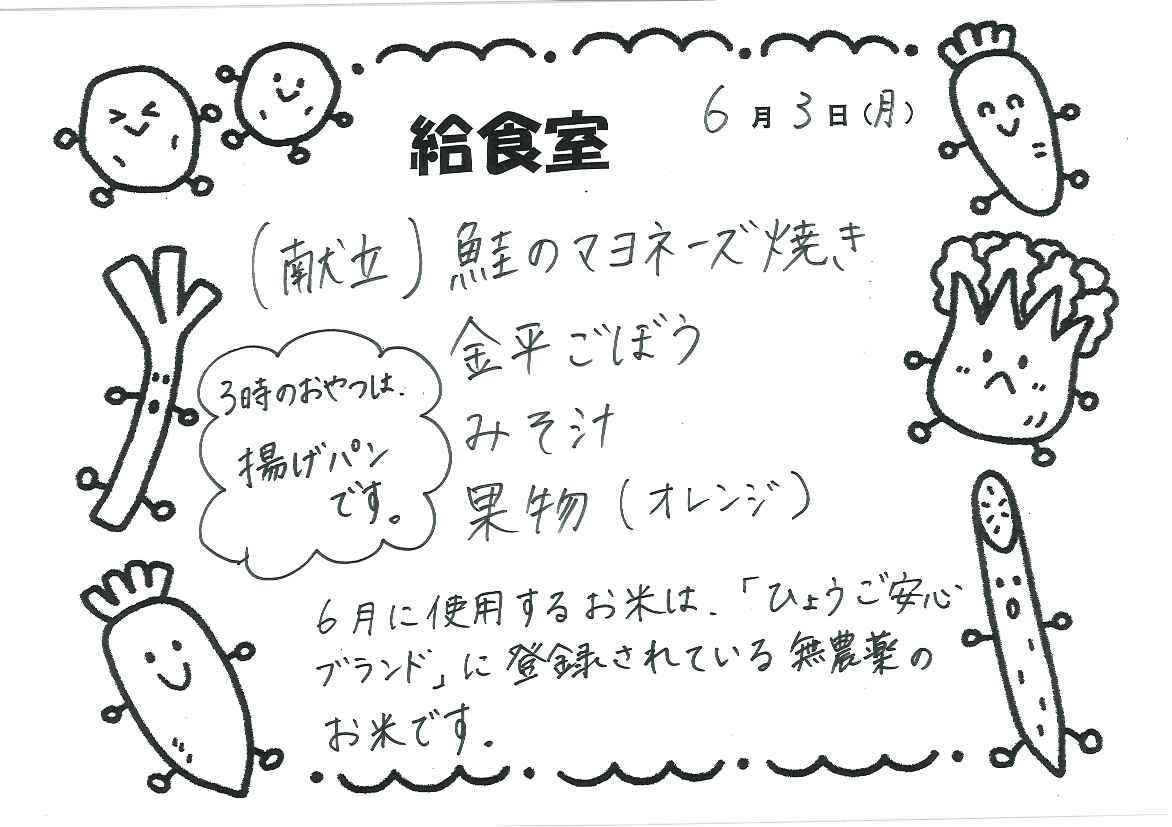 給食室
6月3日(月)
(献立)鮭のマヨネーズ焼き
金平ごぼう
みそ汁
果物(オレンジ)
3時のおやつは、
揚げパン
です。
6月に使用するお米は、「ひょうご安心
ブランド」に登録されている無農薬の
お米です。